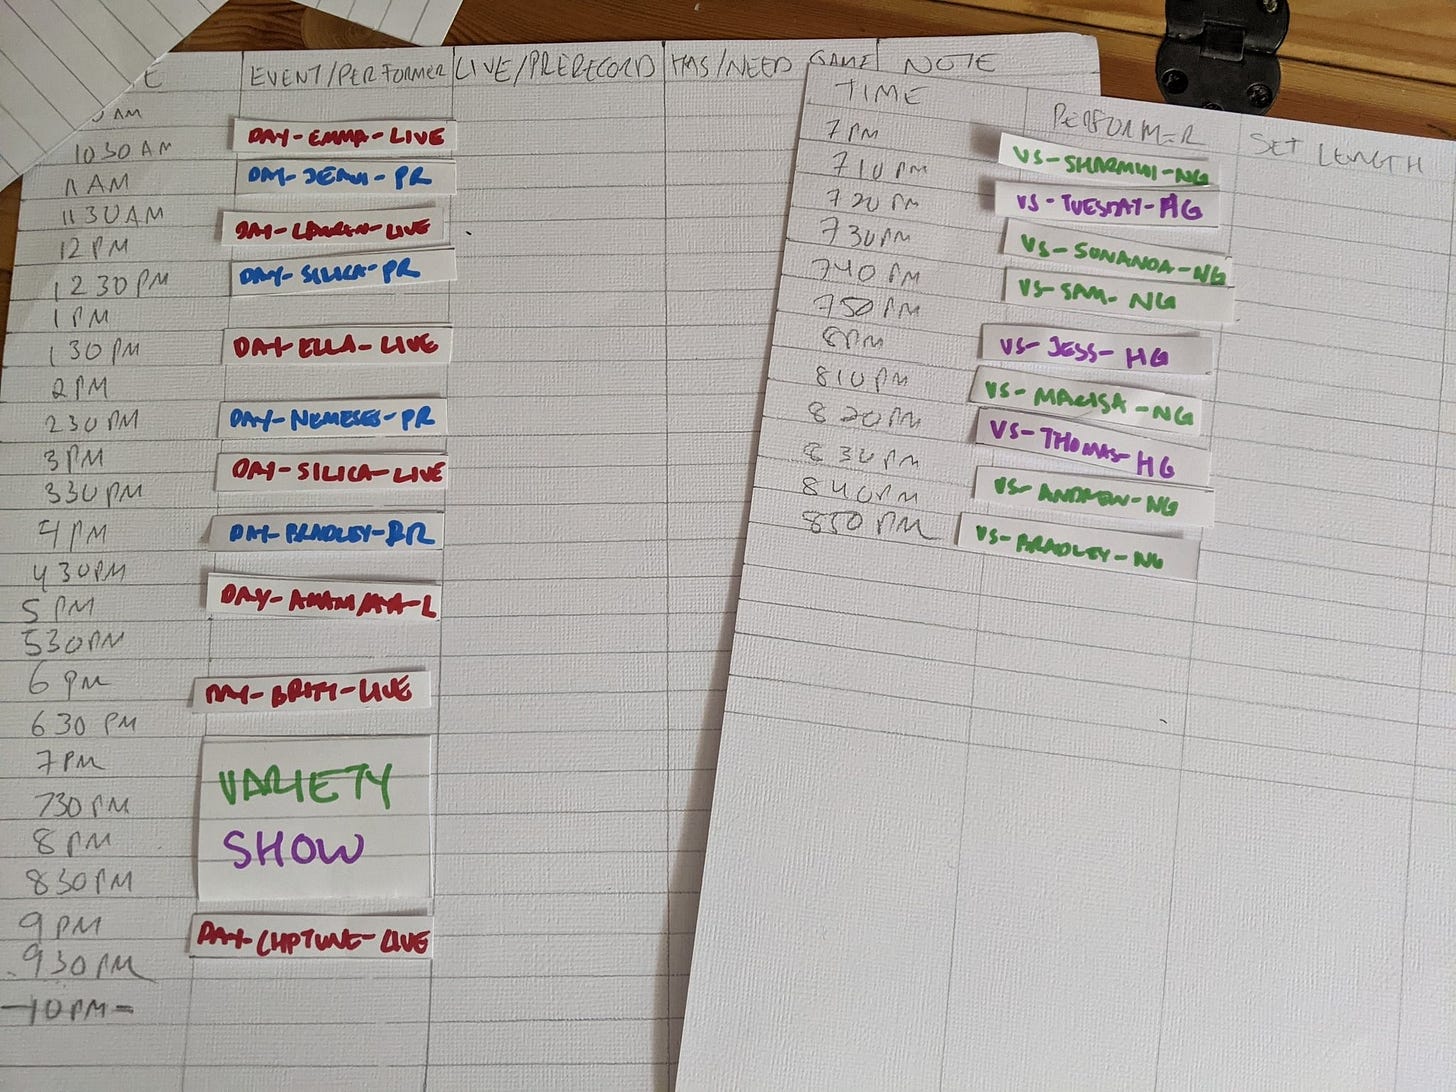 E EVENT/PERFORMER LIVE/PRERECORD HAS/NEED GAME NOTE
AM
1030 AM DAY-EMMA-LIVE
11 AM DAY- -PR
1130AM
12 PM DAY-LAUREN-LIVE
1230 PM DAY-SILICA-PR
1 PM
130 PM DAY-ELLA-LIVE
2 PM
230 PM DAY-NEMESES-PR
3 PM
330 PM DAY-SILICA-LIVE
4 PM DAY-BRADLEY-PR
430PM
5 PM DAY- -L
530PM
6 PM DAY-BRITI-LIVE
630 PM
7 PM VARIETY
730 PM
8 PM SHOW
830 PM
9 PM DAY-CHIPTUNE-LIVE
930PM
-10PM-
TIME PERFORMER SET LENGTH
7 PM
710 PM VS-SHARMINI-NG
720 PM VS-TUESDAY-HG
730PM VS-SUNANDA-NG
740 PM VS-SAM-NG
750 PM
8PM VS-JESS-HG
810 PM VS-MARISA-NG
820 PM VS-THOMAS-HG
830 PM
840PM VS-ANDREW-NG
850 PM VS-BRADLEY-NG